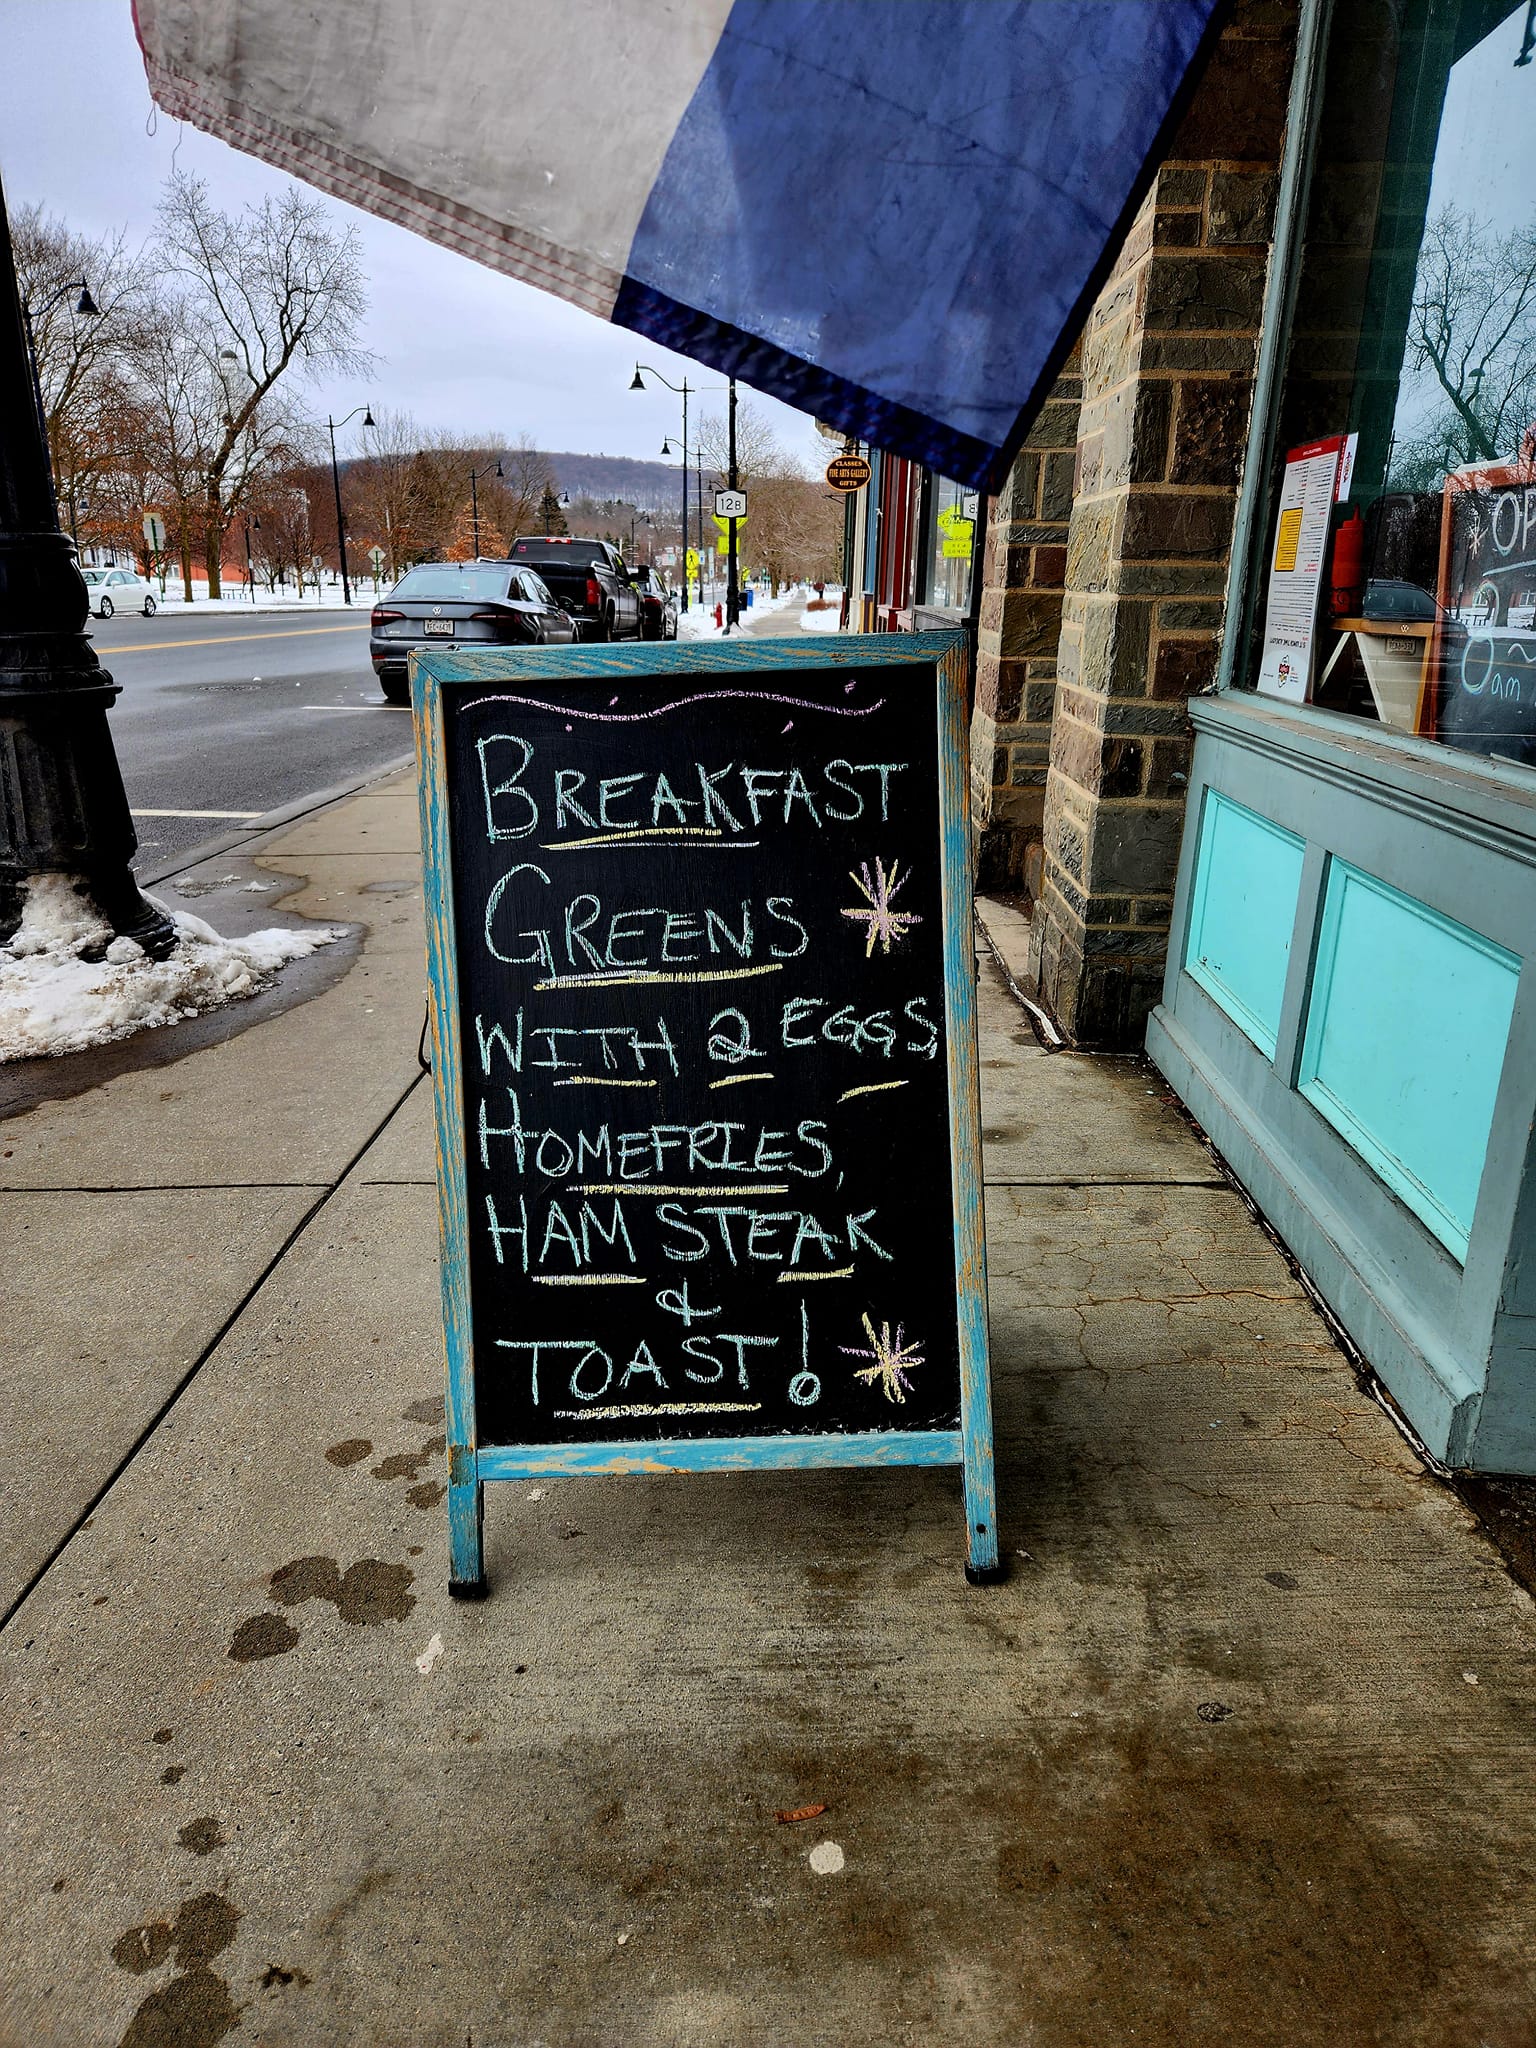 BREAKFAST
GREENS
WITH 2 EGGS,
HOMEFRIES,
HAM STEAK
&
TOAST!
CLASSES
FINE ARTS GALLERY
GIFTS
12B
8